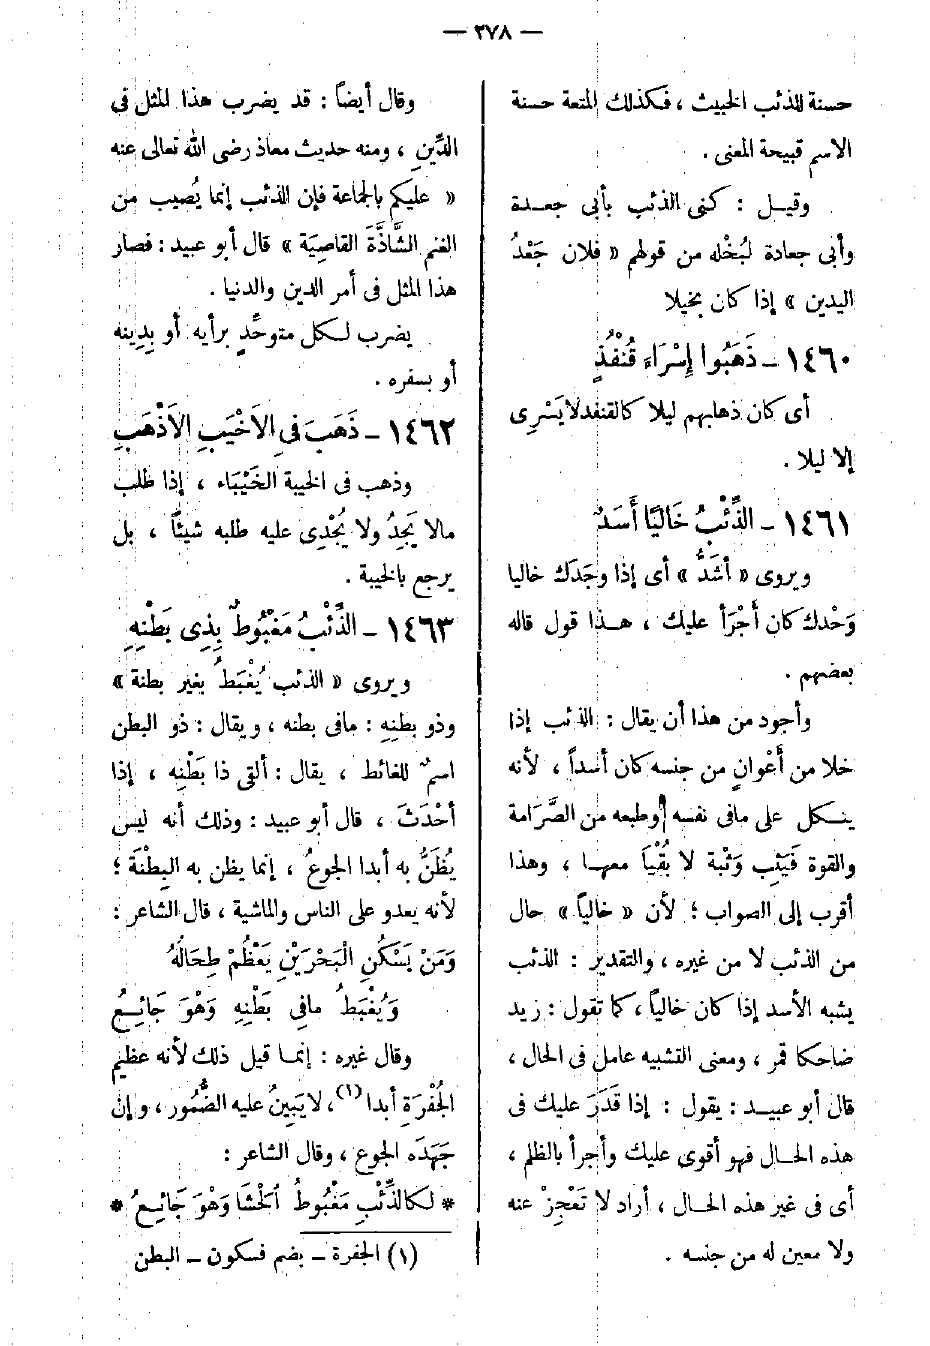 — ٢٧٨ —
حسنة للذئب الخبيث ، فكذلك المتعة حسنة
الاسم قبيحة المعنى .
وقيل : كنى الذئب بأبى جعدة
وأبى جعادة لبُخْله من قولهم « فلان جَعْدُ
اليدين » إذا كان بخيلا
١٤٦٠ ـ ذَهَبُوا إِسْرَاءَ قُنْفُذٍ
أى كان ذهابهم ليلا كالقنفد لا يَسْرِى
إلا ليلا .
١٤٦١ ـ الذِّئْبُ خَاليًا أَسَدٌ
ويروى « أشَدُّ » أى إذا وجَدَك خاليا
وَحْدك كان أَجْرَأ عليك ، هذا قول قاله
بعضهم .
وأجود من هذا أن يقال : الذئب إذا
خلا من أَعْوانٍ من جنسه كان أسداً ، لأنه
يتكل على مافى نفسه وطبعه من الصَّرَامة
والقوة فَيَثِب وَثْبة لا بُقْيَا معها ، وهذا
أقرب إلى الصواب ؛ لأن « خالياً » حال
من الذئب لا من غيره ، والتقدير : الذئب
يشبه الأسد إذا كان خالياً ، كما تقول : زيد
ضاحكا قمر ، ومعنى التشبيه عامل فى الحال ،
قال أبو عبيد : يقول : إذا قَدَرَ عليك فى
هذه الحال فهو أقوى عليك وأجرأ بالظلم ،
أى فى غير هذه الحال ، أراد لا تَعْجِزْ عنه
ولا معين له من جنسه .
وقال أيضاً : قد يضرب هذا المثل فى
الدِّينِ ، ومنه حديث معاذ رضى الله تعالى عنه
« عليكم بالجماعة فإن الذئب إنما يُصيب من
الغنم الشَّاذَّةَ القاصِيَة » قال أبو عبيد : فصار
هذا المثل فى أمر الدين والدنيا .
يضرب لكل متوحِّدٍ برأيه أو بِدِينه
أو بسفره .
١٤٦٢ ـ ذَهَبَ فى الأَخْيَبِ الأَذْهَبِ
وذهب فى الخيبة الخَيْبَاء ، إذا طلب
مالا يَجِدُ ولا يُجْدِى عليه طلبه شيئاً ، بل
يرجع بالخيبة .
١٤٦٣ ـ الذِّئْبُ مَغْبُوطٌ بِذِى بَطْنِهِ
ويروى « الذئب يُغْبَطُ بغير بطنة »
وذو بطنِهِ : مافى بطنه ، ويقال : ذو البطن
اسم للغائط ، يقال : ألقى ذا بَطْنِه ، إذا
أحْدَثَ ، قال أبو عبيد : وذلك أنه ليس
يُظَنُّ به أبدا الجوعُ ، إنما يظن به البِطْنَة ؛
لأنه يعدو على الناس والماشية ، قال الشاعر :
وَمَنْ يَسْكُنِ الْبَحْرَيْنِ يَعْظُمْ طِحَالُهُ
وَيُغْبَطُ مافِى بَطْنِهِ وَهْوَ جَائِعُ
وقال غيره : إنما قيل ذلك لأنه عظيم
الجُفْرَةِ أبدا (١) ، لا يَبِينُ عليه الضُّمُور ، وإن
جَهَدَه الجوع ، وقال الشاعر :
* لكالذِّئْبِ مَغْبُوطُ الحَشَا وَهْوَ جَائِعُ *
(١) الجفرة ـ بضم فسكون ـ البطن